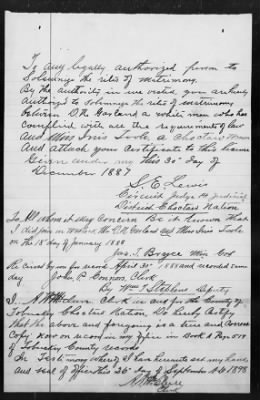 To any legally authorized person to
Solemnize the rites of matrimony.
By the authority in me vested you are hereby
authorized to solemnize the rites of matrimony
between D.R. Garland a white man who has
complied with all the requirements of law
And Miss Inis Toole a Choctaw woman
And attach your Certificate to this license
Given under my this 30" day of
December 1887
S. E. Lewis
Circuit Judge
District Choctaw Nation
To Whom it May Concern Be it known that
I did join in wedlock Mr. Garland and Miss Inis Toole
on the 15" day of January 1888
Jas. T. Brayce Min
Received by me for record April 1888 and recorded same
day John P. Connor, Clerk
By Wm J. Stallens Deputy
I, Clerk in and for the County of
Tobucksy Choctaw Nation, Do hereby Certify
that the above and foregoing is a true and correct
Copy now on record in my office in Book A Page 519
of Tobucksy County records
In Testimony Whereof I hereunto set my hand
and seal of office this 26" day of September AD 1898
Clerk